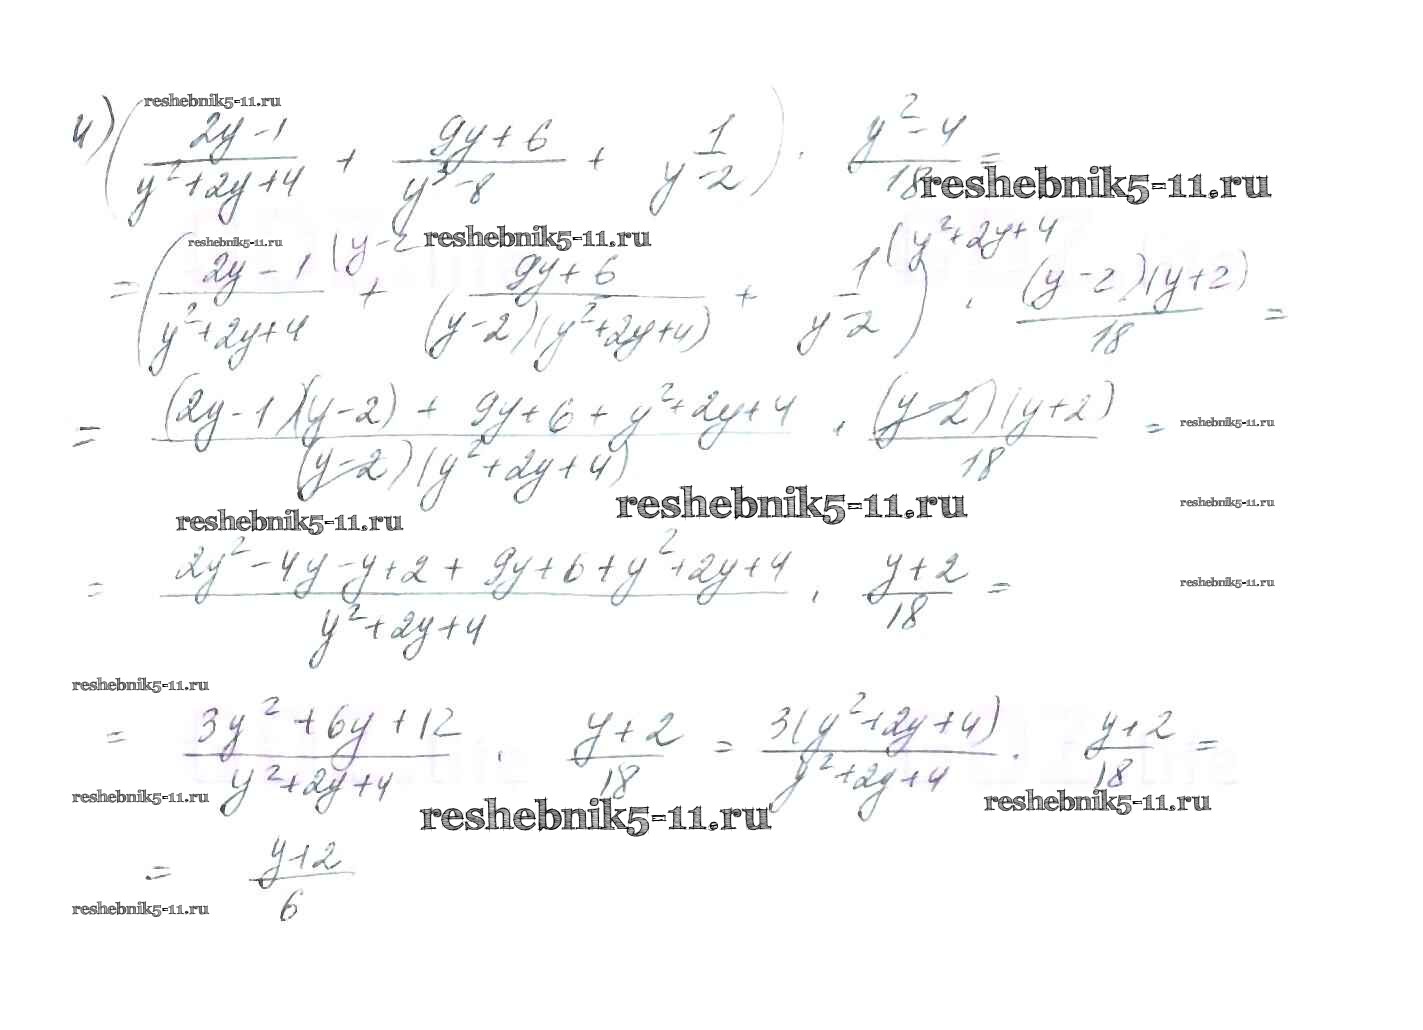 reshebnik5-11.ru
4) ( (2y-1)/(y²+2y+4) + (9y+6)/(y³-8) + 1/(y-2) ) · (y²-4)/18 =
reshebnik5-11.ru
reshebnik5-11.ru (y-2 reshebnik5-11.ru (y²+2y+4
= ( (2y-1)/(y²+2y+4) + (9y+6)/((y-2)(y²+2y+4)) + 1/(y-2) ) · ((y-2)(y+2))/18 =
= ((2y-1)(y-2) + 9y+6+y²+2y+4)/((y-2)(y²+2y+4)) · ((y-2)(y+2))/18 = reshebnik5-11.ru
reshebnik5-11.ru reshebnik5-11.ru reshebnik5-11.ru
= (2y²-4y-y+2+9y+6+y²+2y+4)/(y²+2y+4) · (y+2)/18 = reshebnik5-11.ru
reshebnik5-11.ru
= (3y²+6y+12)/(y²+2y+4) · (y+2)/18 = 3(y²+2y+4)/(y²+2y+4) · (y+2)/18 =
reshebnik5-11.ru reshebnik5-11.ru reshebnik5-11.ru
= (y+2)/6
reshebnik5-11.ru